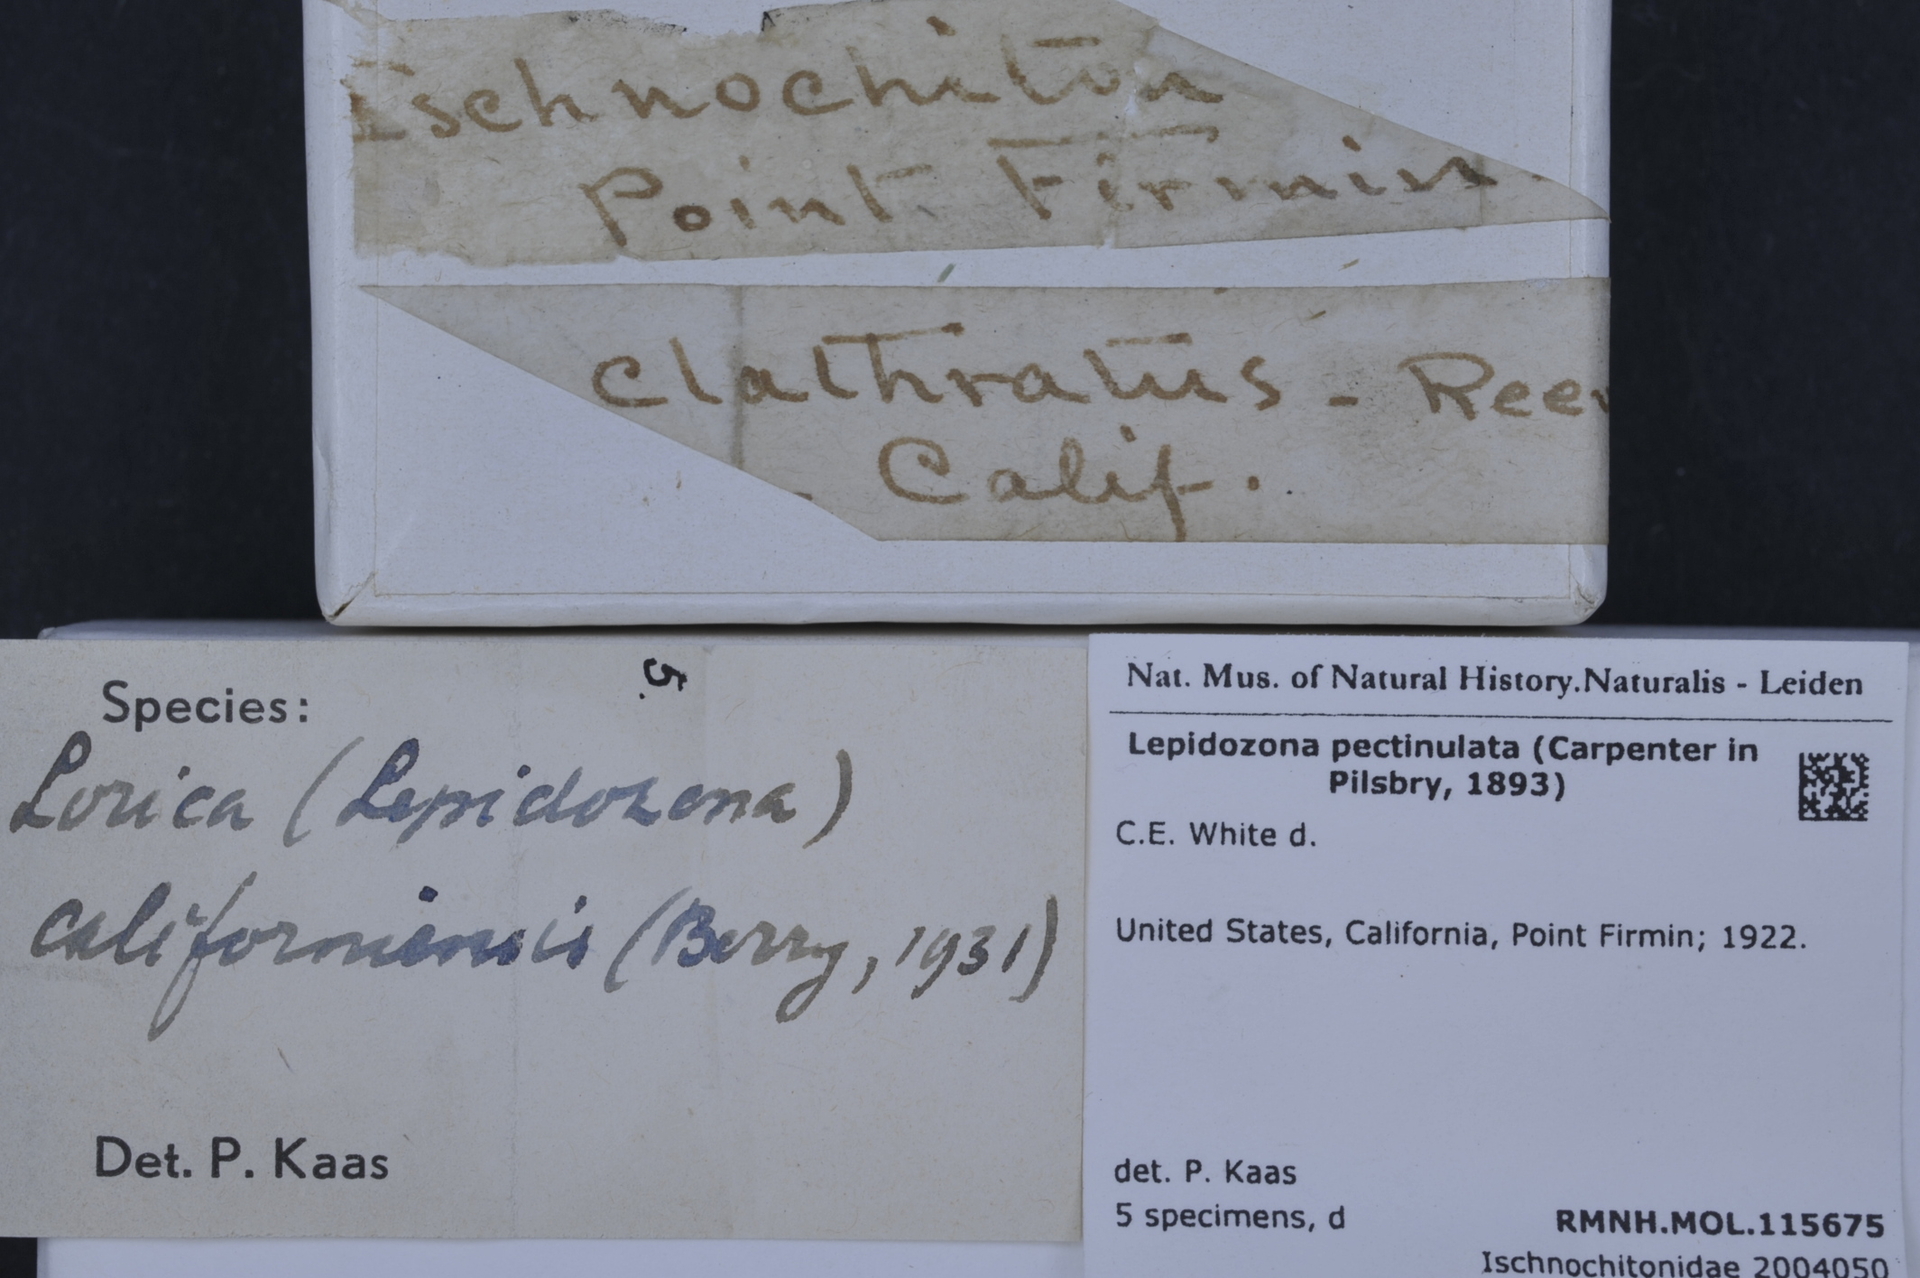 Ischnochiton
Point Firmin.
clathratus - Reev
Calif.
5.
Species:
Lorica (Lepidozona)
californiensis (Berry, 1931)
Det. P. Kaas
Nat. Mus. of Natural History.Naturalis - Leiden
Lepidozona pectinulata (Carpenter in
Pilsbry, 1893)
C.E. White d.
United States, California, Point Firmin; 1922.
det. P. Kaas
5 specimens, d
RMNH.MOL.115675
Ischnochitonidae 2004050